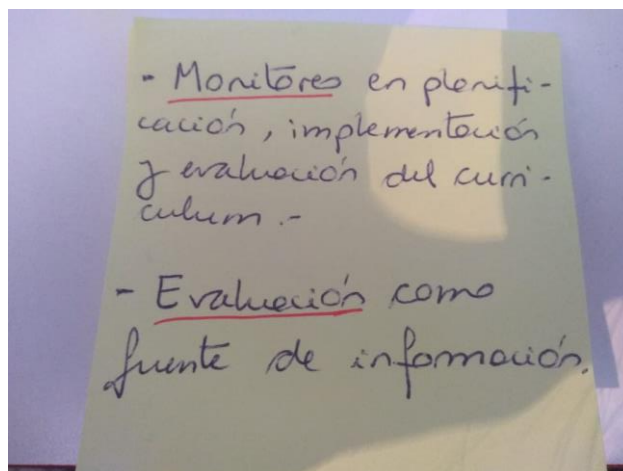 - Monitoreo en planifi-
cación, implementación
y evaluación del curri-
culum.-
- Evaluación como
fuente de información.